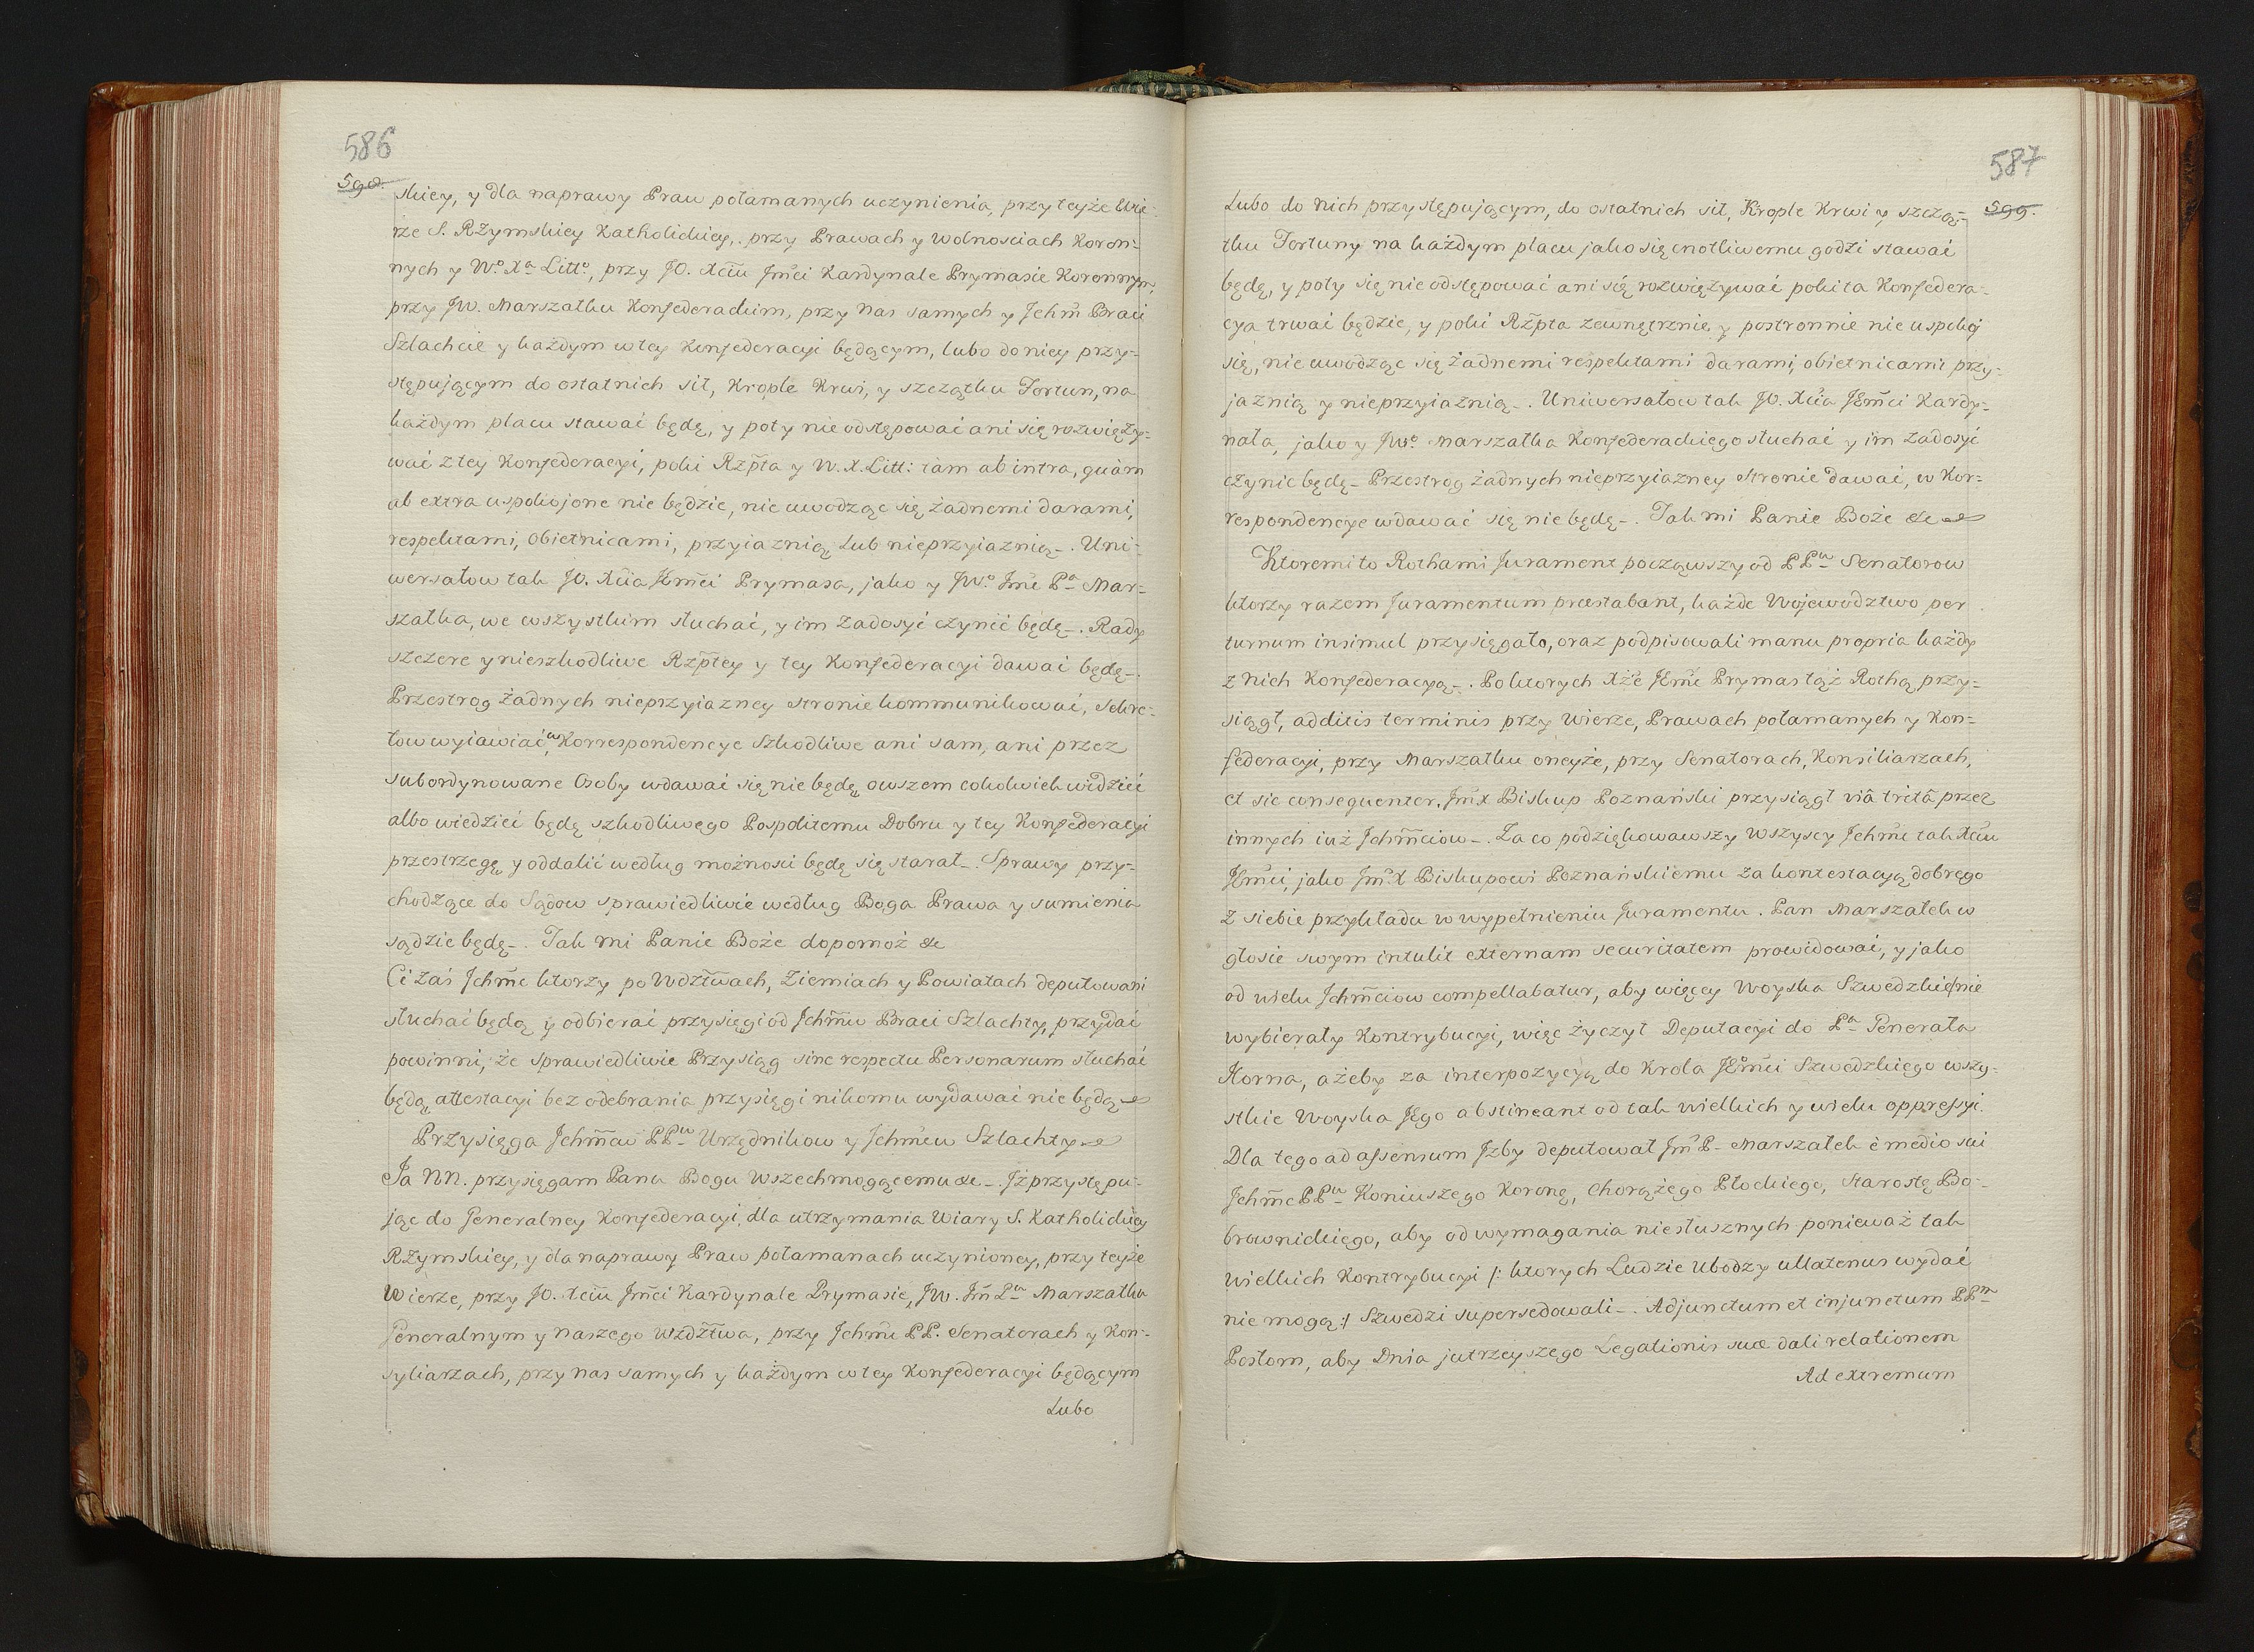 586
598.
skiey, y dla naprawy Praw połamanych uczynienia, przy teyże Wie-
rze S. Rzymskiey Katholickiey, przy Prawach y Wolnosciach Koron-
nych y W.º Xª Littº, przy JO. Xciu Jmci Kardynale Prymasie Koronnym,
przy JW. Marszałku Konfederackim, przy nas samych y Jchm Braci
Szlachcie y każdym w tey Konfederacyi będącym, lubo do niey przy-
stępującym do ostatnich sił, Krople Krwi, y szczątku Fortun, na
każdym placu stawać będę, y poty nie odstępować ani się rozwięzy-
wać z tey Konfederacyi, poki Rzpta y W. X. Litt: tam ab intra, quàm
ab extra uspokojone nie będzie, nie uwodząc się żadnemi darami,
respektami, Obietnicami, przyiaznią lub nieprzyiaznią_. Uni-
wersałow tak JO. Xcia JEmci Prymasa, jako y JWº Jmci Pª Mar-
szałka, we wszystkim słuchać, y im zadosyć czynić będę_. Rady
szczere y nieszkodliwe Rzptey y tey Konfederacyi dawać będę_.
Przestrog żadnych nieprzyiazney stronie kommunikować, Sekre-
tow wyiawiać, w Korrespondencye Szkodliwe ani sam, ani przez
subordynowane Osoby wdawać się nie będę, owszem cokolwiek widzieć
albo wiedzieć będę szkodliwego Pospolitemu Dobru y tey Konfederacyi
przestrzegę y oddalić według możnosci będę się starał_. Sprawy przy-
chodzące do Sądow sprawiedliwie według Boga Prawa y sumienia
sądzić będę_. Tak mi Panie Boże dopomoż &c
Ci zaś Jchmc ktorzy po Wdztwach, Ziemiach y Powiatach deputowani
słuchać będą y odbierać przysięgi od Jchmciw Braci Szlachty, przydać
powinni, że sprawiedliwie Przysiąg sine respectu Personarum słuchać
będą, attestacyi bez odebrania przysięgi nikomu wydawać nie będą
Przysięga Jchmciw PPw Urzędnikow y Jchmciw Szlachty
Ja NN. przysięgam Panu Bogu Wszechmogącemu &c_. Jż przystępu-
jąc do Generalney Konfederacyi, dla utrzymania Wiary S. Katholickiey
Rzymskiey, y dla naprawy Praw połamanach uczynioney, przy teyże
Wierze, przy JO. Xciu Jmci Kardynale Prymasie, JW. Jm Pu Marszałku
Generalnym y naszego Wdztwa, przy Jchmci PP. Senatorach y Kon-
syliarzach, przy nas samych y każdym w tey Konfederacyi będącym
Lubo
587
599.
Lubo do nich przystępującym, do ostatnich sił, Krople Krwi y szczą-
tku Fortuny na każdym placu jako się cnotliwemu godzi stawać
będę, y poty się nie odstępować ani się rozwięzywać poki ta Konfedera-
cya trwać będzie, y poki Rzpta zewnętrznie y postronnie nie uspokoj
się, nie uwodząc się żadnemi respektami darami, obietnicami przy-
jaznią y nieprzyiaznią_. Uniwersałow tak JO. Xcia JEmci Kardy-
nała, jako y JWº Marszałka Konfederackiego słuchać y im zadosyć
czynić będę_ Przestrog żadnych nieprzyiazney stronie dawać, w Kor-
respondencye wdawać się nie będę_. Tak mi Panie Boże &c
Ktoremi to Rothami Jurament począwszy od PPw Senatorow
ktorzy razem Juramentum præstabant, każde Wojewodztwo per
turnum insimul przysięgało, oraz podpisowali manu propria każdy
z nich Konfederacyą_. Po ktorych Xże JEmc Prymas tąż Rothą przy-
siągł, additis terminis przy Wierze, Prawach połamanych y Kon-
federacyi, przy Marszałku oneyże, przy Senatorach, Konsiliarzach,
et sic consequenter. Jm X Biskup Poznański przysiągł viâ tritâ przez
innych iuż Jchmciow_. Za co podziękowawszy Wszyscy Jchmc tak Xciu
JEmci, jako Jm X Biskupowi Poznańskiemu za kontestacyą dobrego
z siebie przykładu w wypełnieniu Juramentu. Pan Marszałek w
głosie swym intulit externam securitatem prowidować, y jako
od wielu Jchmciow compellabatur, aby więcey Woyska Szwedzkie nie
wybierały Kontrybucyi, więc życzył Deputacyi do Pª Generała
Horna, ażeby za interpozycyą do Krola JEmci Szwedzkiego wszy-
stkie Woyska Jego abstineant od tak wielkich y wielu oppressyi.
Dla tego ad assensum Jzby deputował Jm P_ Marszałek è medio sui
Jchmc PPw Koniuszego Koroñ, Chorążego Płockiego, Starostę Bo-
brownickiego, aby od wymagania niesłusznych ponieważ tak
wielkich Kontrybucyi /: ktorych Ludzie Ubodzy ullatenus wydać
nie mogą :/ Szwedzi supersedowali_. Adjunctum et injunctum PPm
Posłom, aby Dnia jutrzeyszego Legationis suæ dali relationem
Ad extremum